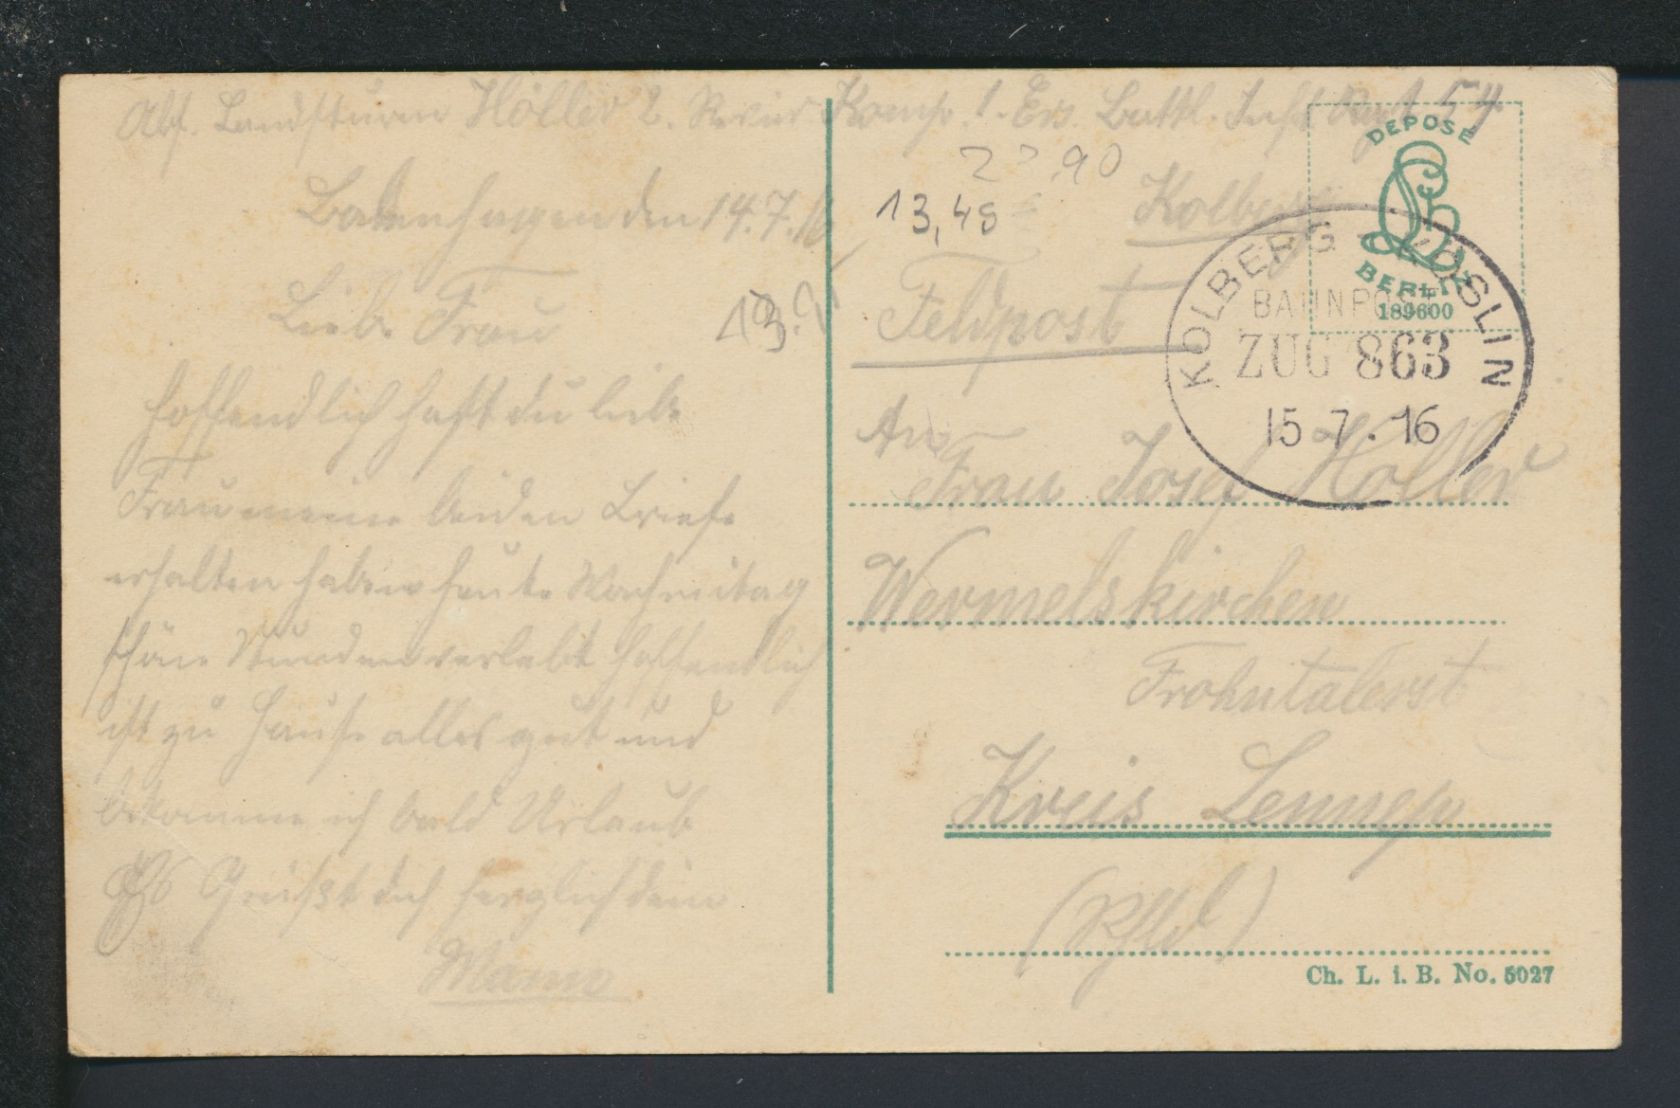 Abs. Landsturm Höller 2. Rekr. Komp. 1. Ers. Battl. Inft Rgt 54
Kolberg
Bodenhagen den 14.7.16
Liebe Frau
Hoffendlich hast du liebe
Frau meine beiden Briefe
erhalten haben heute Nachmitag
schöne Stunden verlebt hoffendlich
ist zu Hause alles gut und
bekomme ich bald Urlaub
Es Grüßt dich herzlich dein
Mann
90
13,48
Feldpost
An
Frau Josef Höller
Wermelskirchen
Frohntalerst
Kreis Lennep
(Rhld)
DEPOSE
BERLIN
189600
KOLBERG KÖSLIN
BAHNPOST
ZUG 863
15 7. 16
Ch. L. i. B. No. 5027